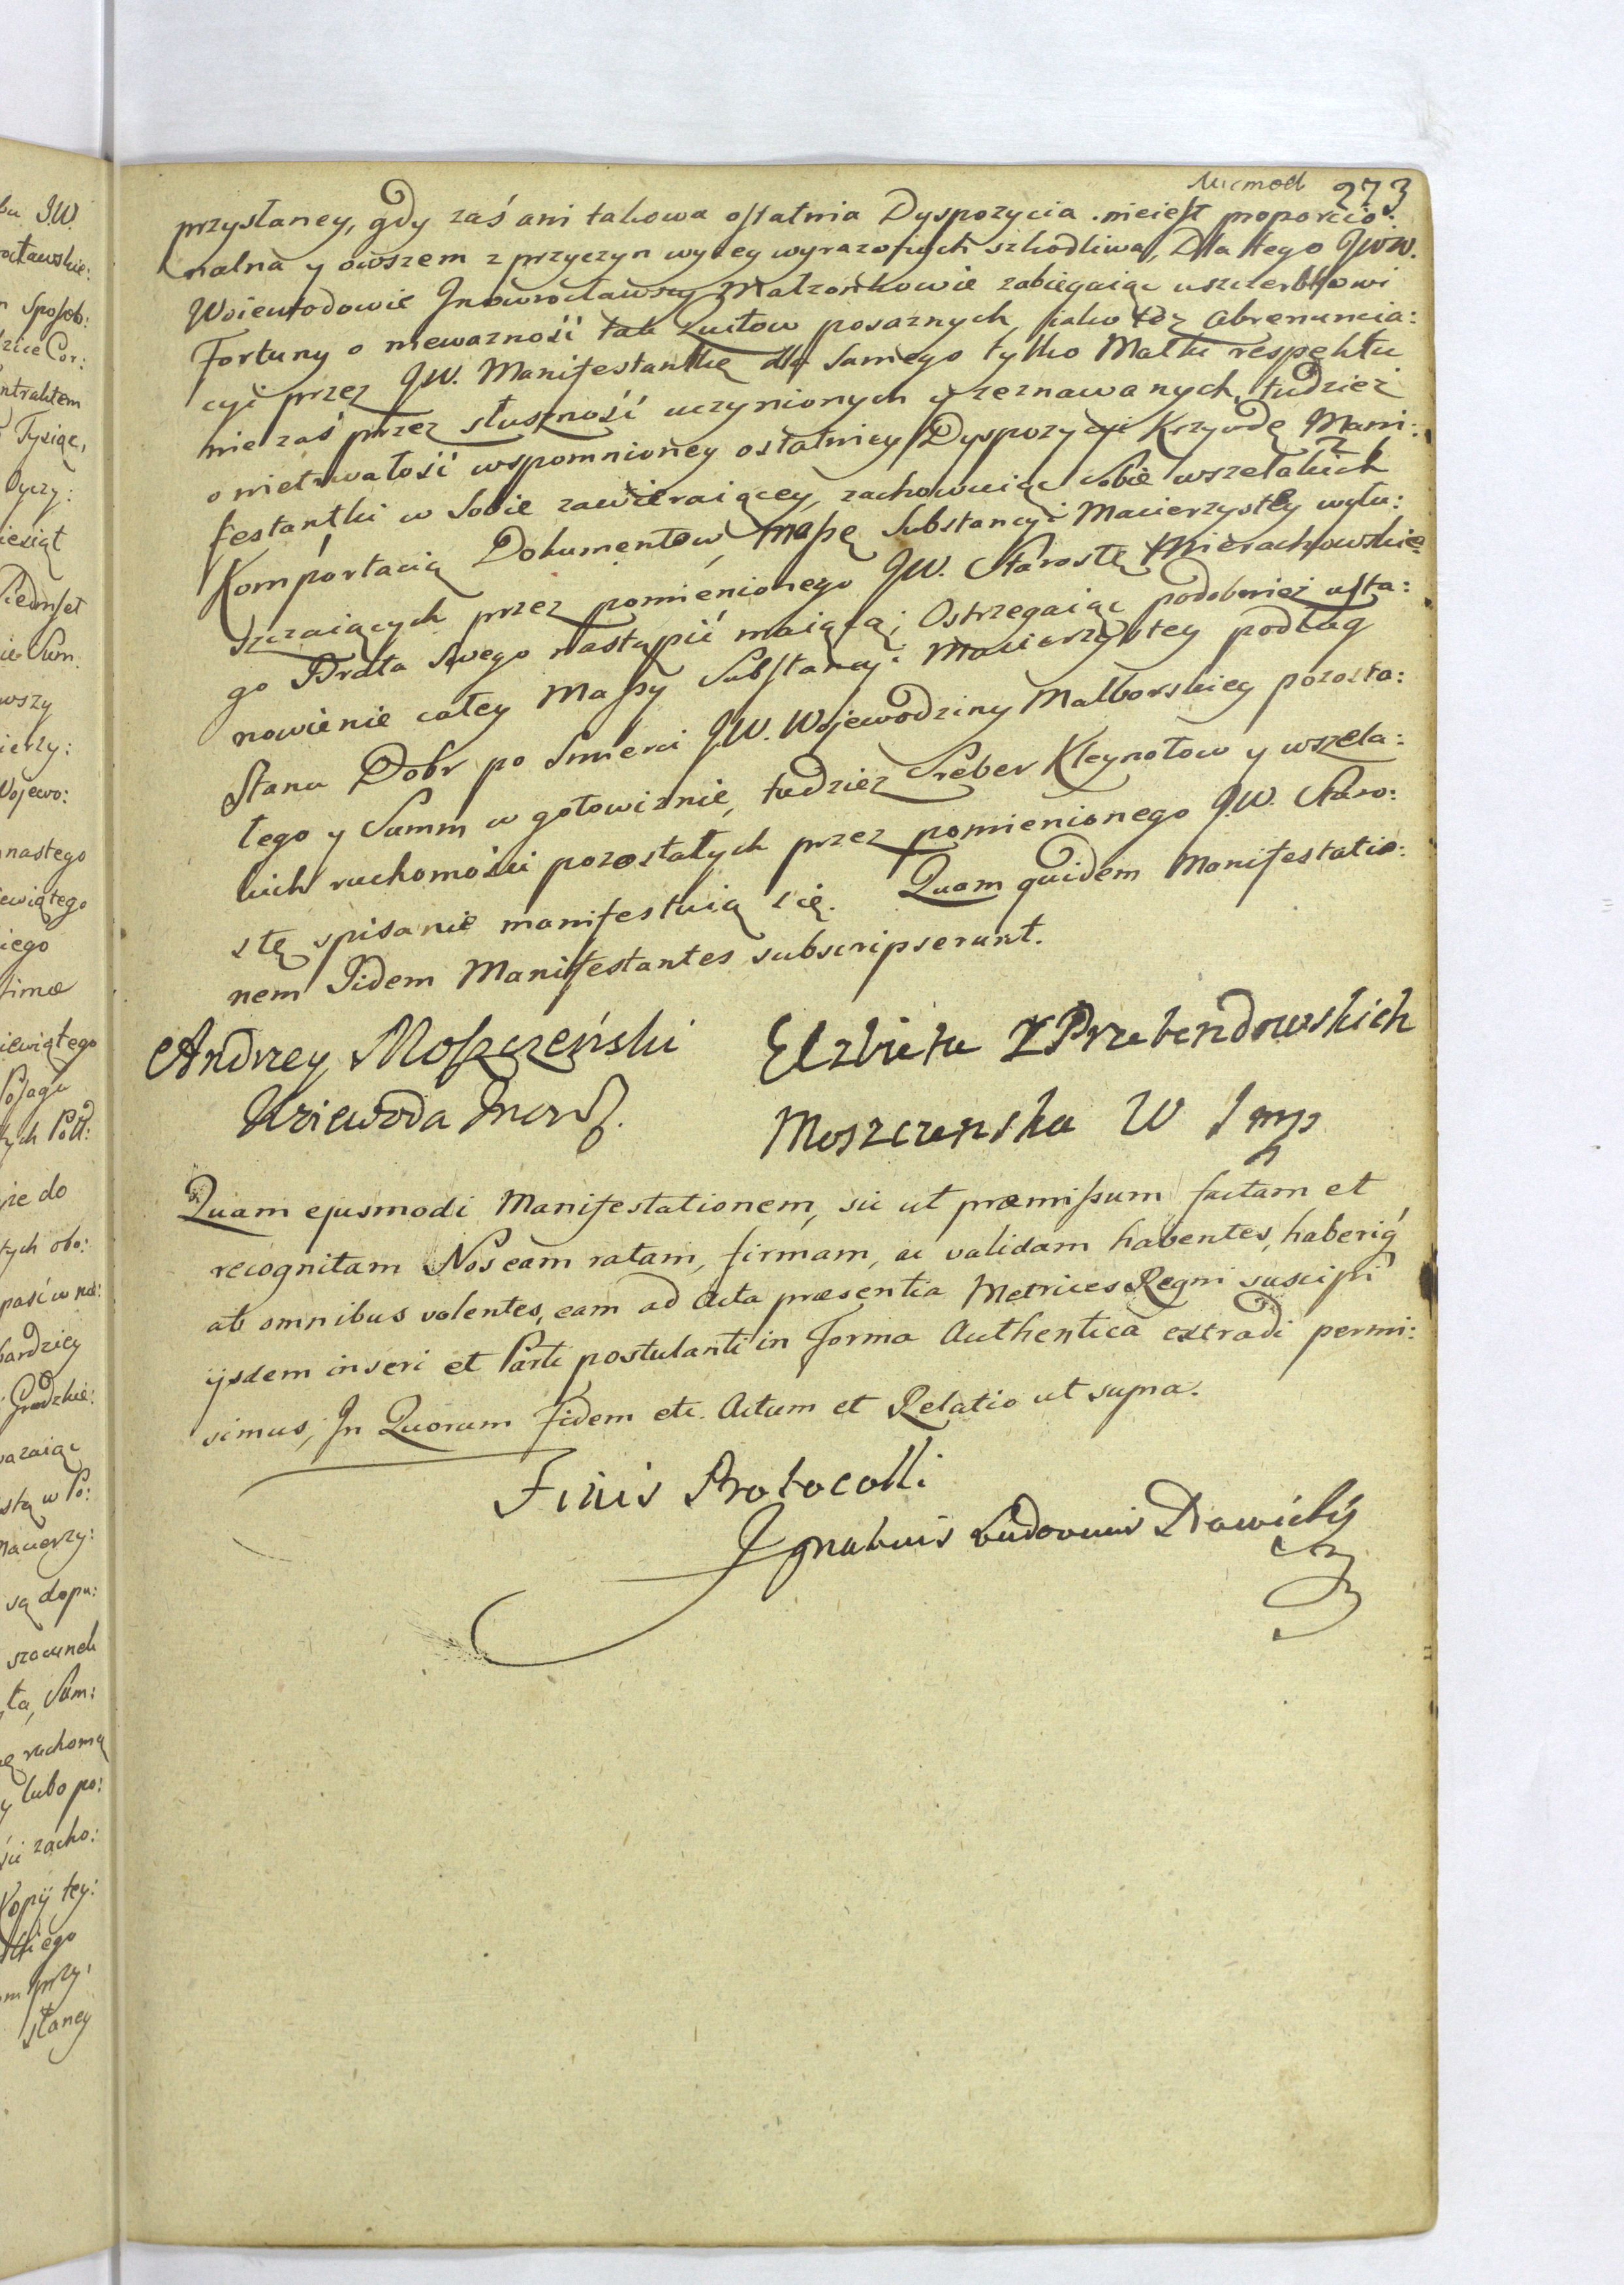 273
przysłaney, gdy zaś ani takowa ostatnia Dyspozycia nieiest proporcio:
nalna y owszem z przyczyn wyzey wyrazonych szkodliwa, Dla tego JWW.
Woiewodowie Jnowrocławscy Małzonkowie zabiegaiąc uszczerbkowi
Fortuny o niewazność tak Zuitow posaznych, iako też abrenuncia:
cyi przez JW. Manifestantkę dla samego tylko Matki respektu
nie zaś przez słuszność uczynionych y zeznawanych, tudzież
o nietrwałość wspomnioney ostatniey Dyspozycyi Krzywdę Mani:
festantki w sobie zawieraiącey, zachowuiąc sobie wszelakich
Komportacią Dokumentow massę Substancyi Macierzystey wyłu:
szczaiących przez pomienionego JW. Starostę Mierachowskie
go Brata swego nastąpić maiącą; Ostrzegaiąc podobnież usta:
nowienie całey Massy Substancyi Macierzystey podług
Stanu Dobr po śmierci JW. Wojewodziny Malborskiey pozosta:
łego y Summ w gotowiznie, tudziez Sreber Kleynotow y wszela:
kich ruchomości pozostałych przez pomienionego JW. Staro:
stę spisanie manifestuią się. Quam quidem Manifestatio:
nem Iidem Manifestantes subscripserunt.
Andrzey Moszczeński
Elzbieta z Przebendowskich
Woiewoda
Moszczenska W
Quam ejusmodi Manifestationem, sic ut præmissum factam et
recognitam Nos eam ratam, firmam, ac validam habentes, haberiq́
ab omnibus volentes, eam ad Acta præsentia Metrices Regni suscipi
ijsdem inseri et Parti postulanti in Forma Authentica extradi permi:
simus, In Quorum Fidem etc. Actum et Relatio ut supra.
Finis Protocolli
Ignatius Ludovicus
bu JW.
ocławskie:
Sposob:
Cor:
ntraktem
Tysiąc,
iesiąt
Siedmset
ie Sum.
wszy
ierzy:
Wojewo:
nastego
ewiątego
iego
timæ
iewiątego
Posagu
ych
ie do
tych obo:
bardziey
Grodzkie:
wazaiąc
stą w Po:
Macierzy:
są dopu:
szacunek
ta, Sum:
ruchomą
y lubo po:
ści zacho:
Kopij tey:
skiego
przy:
słaney